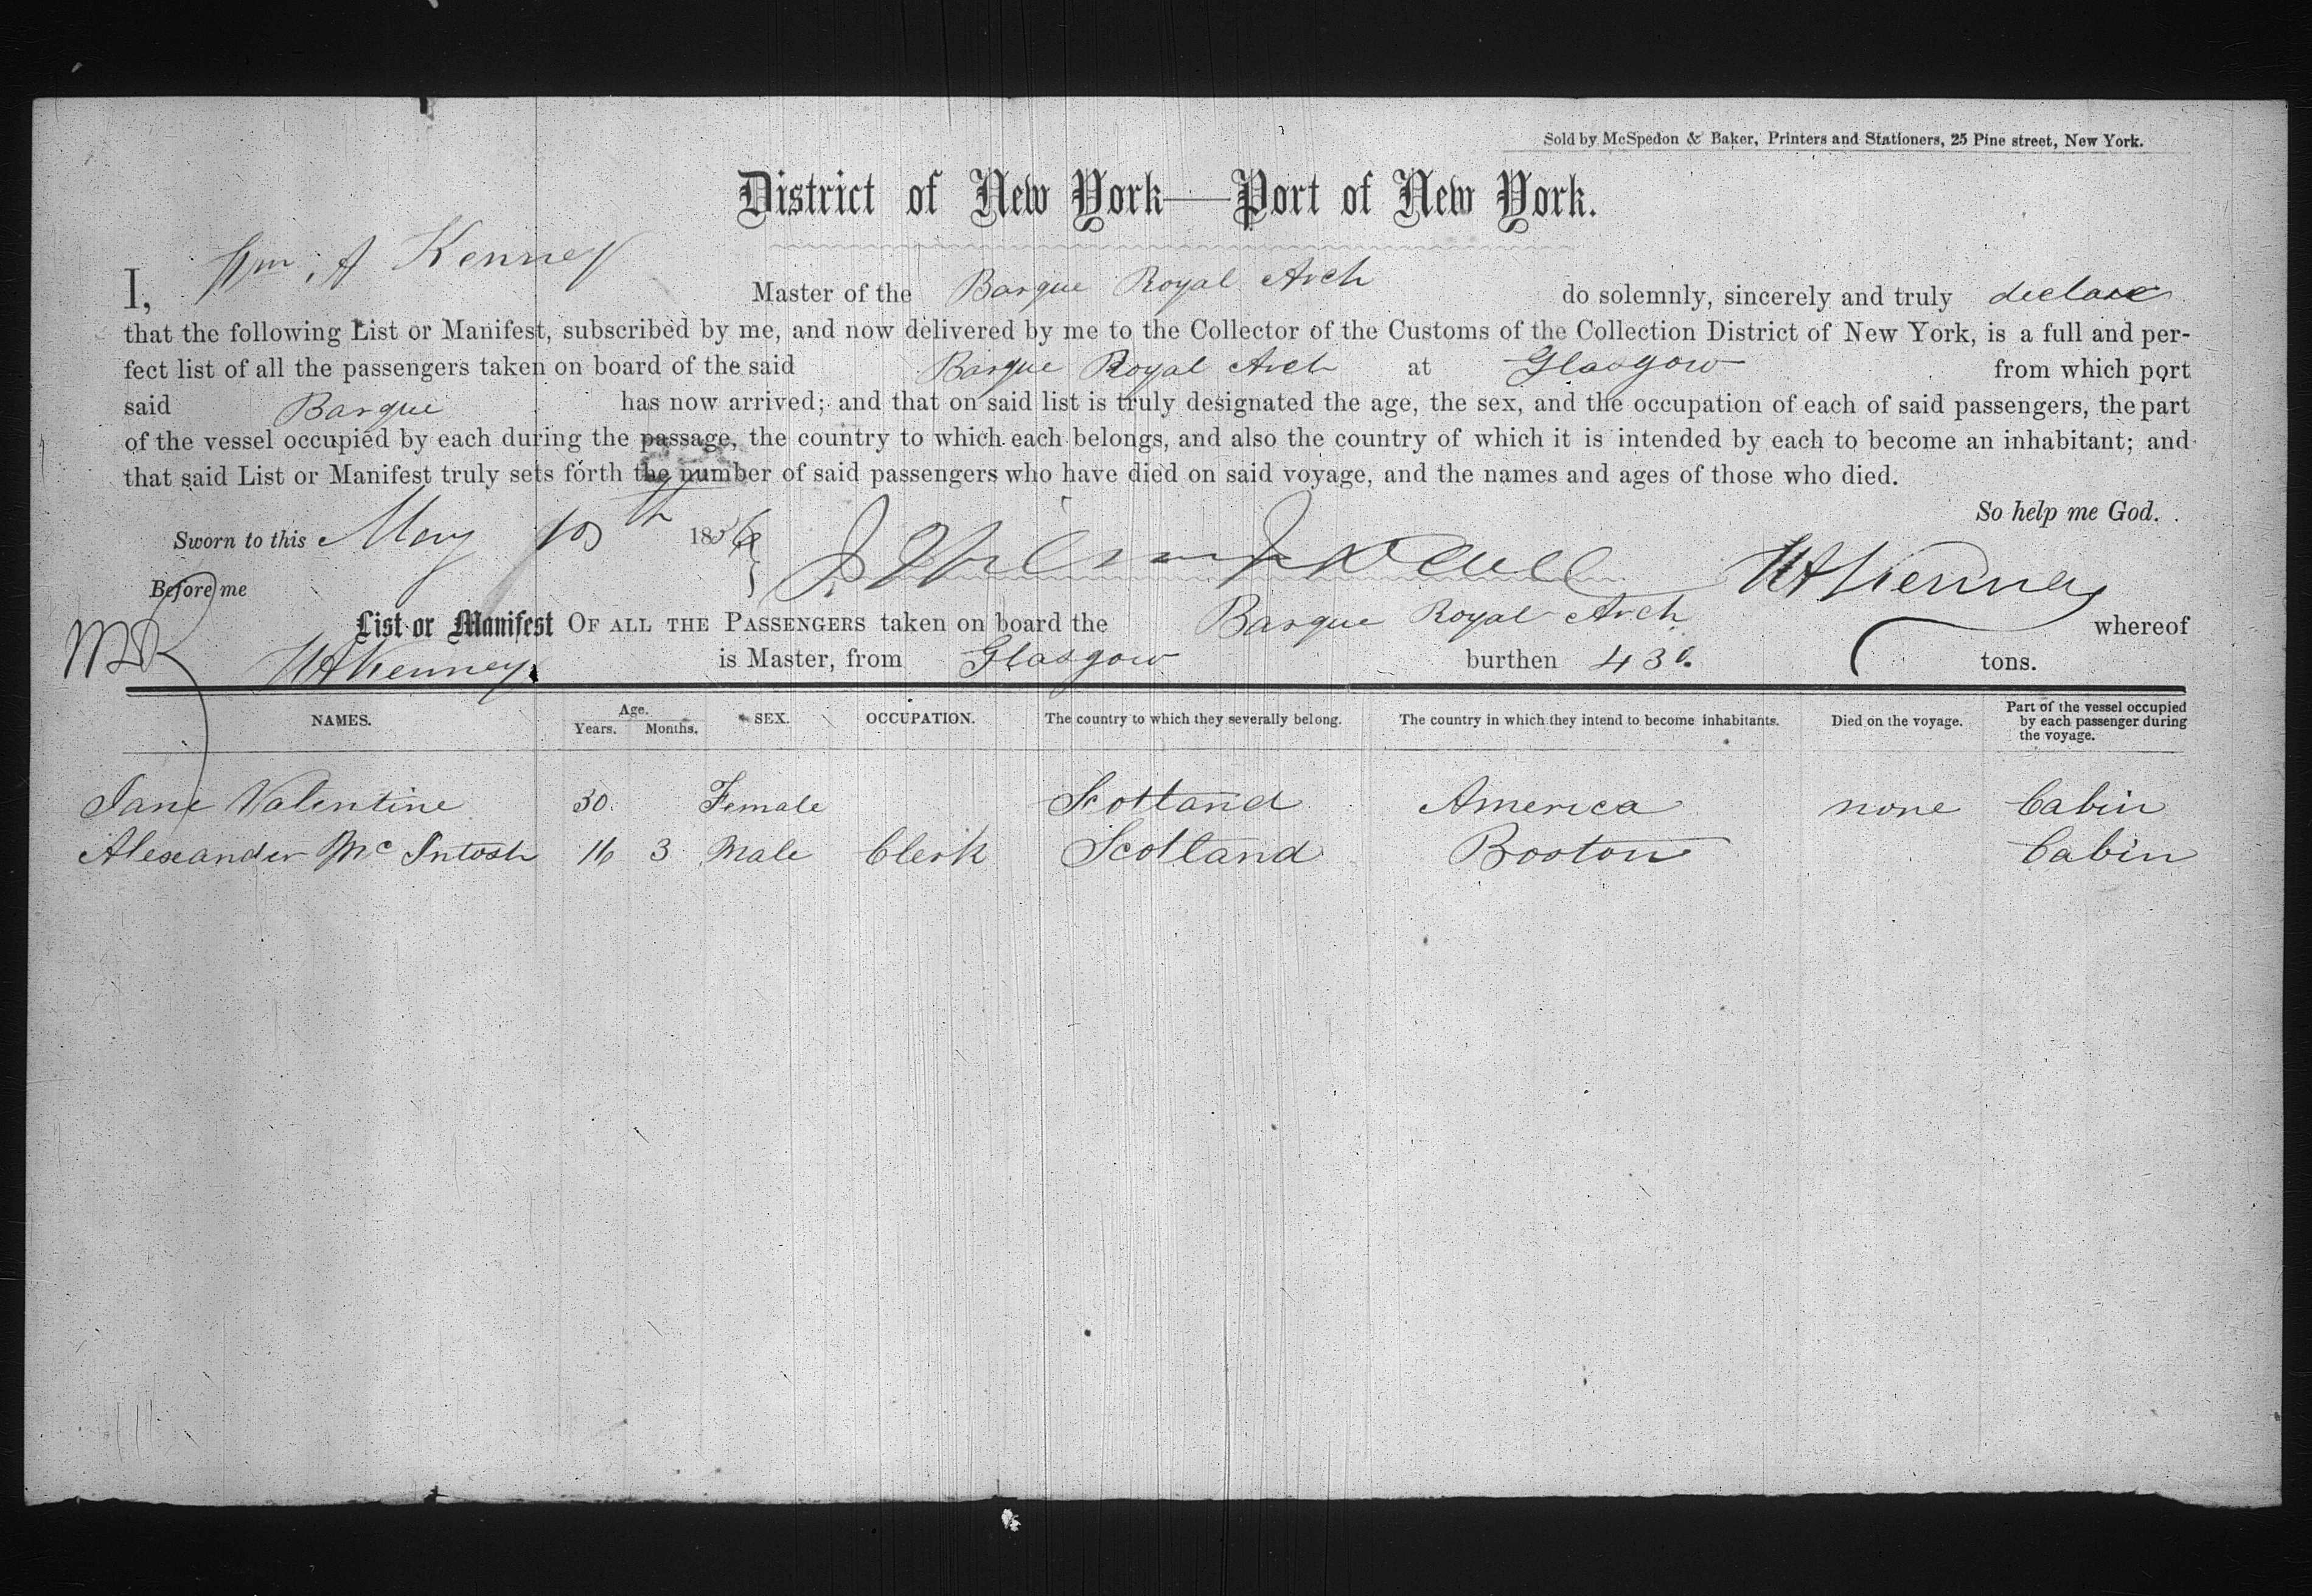 Sold by McSpedon & Baker, Printers and Stationers, 25 Pine street, New York.
District of New York—Port of New York.
I, Wm. A Kenney Master of the Barque Royal Arch do solemnly, sincerely and truly declare
that the following List or Manifest, subscribed by me, and now delivered by me to the Collector of the Customs of the Collection District of New York, is a full and per-
fect list of all the passengers taken on board of the said Barque Royal Arch at Glasgow from which port
said Barque has now arrived; and that on said list is truly designated the age, the sex, and the occupation of each of said passengers, the part
of the vessel occupied by each during the passage, the country to which each belongs, and also the country of which it is intended by each to become an inhabitant; and
that said List or Manifest truly sets forth the number of said passengers who have died on said voyage, and the names and ages of those who died.
So help me God.
Sworn to this May 10th 1856
Before me WA Kenney
List or Manifest OF ALL THE PASSENGERS taken on board the Barque Royal Arch whereof
WA Kenney is Master, from Glasgow burthen tons.
NAMES. Age. Years. Months. SEX. OCCUPATION. The country to which they severally belong. The country in which they intend to become inhabitants. Died on the voyage. Part of the vessel occupied by each passenger during the voyage.
Jane Valentine 30. Female Scotland America none Cabin
Alexander Mc Intosh 16 3 Male Clerk Scotland Boston Cabin